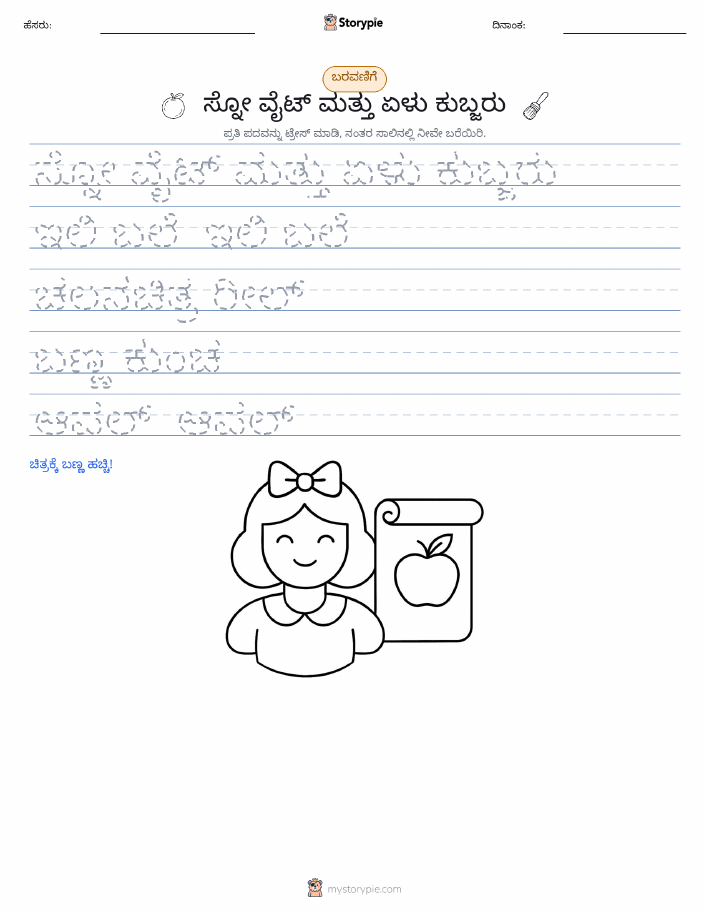 ಹೆಸರು:
Storypie
ದಿನಾಂಕ:
ಬರವಣಿಗೆ
ಸ್ನೋ ವೈಟ್ ಮತ್ತು ಏಳು ಕುಬ್ಜರು
ಪ್ರತಿ ಪದವನ್ನು ಟ್ರೇಸ್ ಮಾಡಿ, ನಂತರ ಸಾಲಿನಲ್ಲಿ ನೀವೇ ಬರೆಯಿರಿ.
ಸ್ನೋ ವೈಟ್ ಮತ್ತು ಏಳು ಕುಬ್ಜರು
ಇಲಿ ಬಲೆ ಇಲಿ ಬಲೆ
ಚಲನಚಿತ್ರ ರೀಲ್
ಬಣ್ಣ ಕುಂಚ
ಈಸೆಲ್ ಈಸೆಲ್
ಚಿತ್ರಕ್ಕೆ ಬಣ್ಣ ಹಚ್ಚಿ!
mystorypie.com